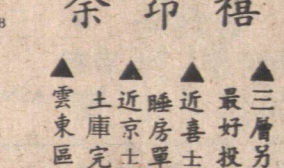 禧
印
▲三層
最好投
▲近喜士
睡房單
▲近京士
土庫完
▲雲東區